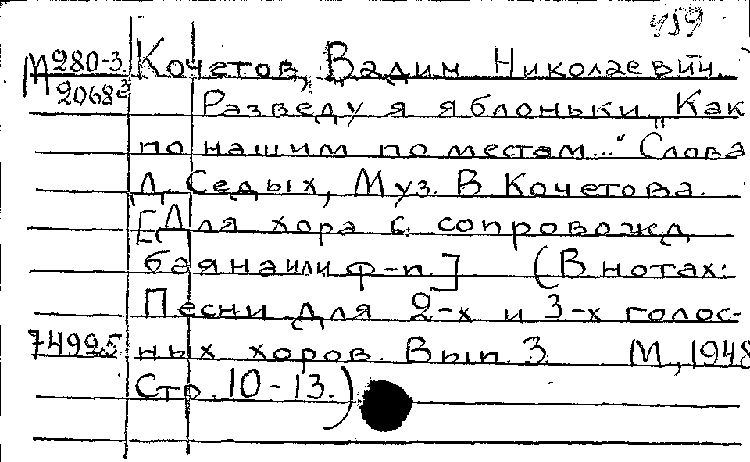 459
М280-3 Кочетов, Вадим Николаевич.
20682 Разведу я яблоньки „Как
по нашим по местам..." Слова
Л. Седых, Муз. В Кочетова.
[Для хора с сопровожд.
баяна или ф-п.] (В нотах:
Песни для 2-х и 3-х голос-
74925 ных хоров. Вып. 3 М., 1948
Стр. 10-13.)